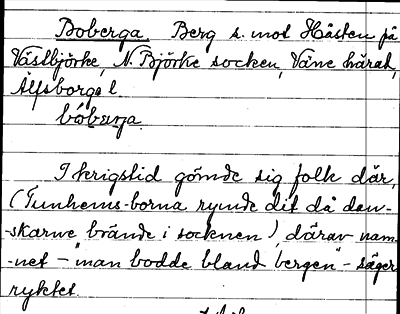 Boberga. Berg s. mot Hästen på
Västbjörke, N. Björke socken, Väne härad,
Älfsborgs l.
bóbærja.
I krigstid gömde sig folk där,
(Tunhems-borna rymde dit då dan-
-skarne brände i socknen), därav nam-
-net - "man bodde bland bergen" - säger
ryktet.